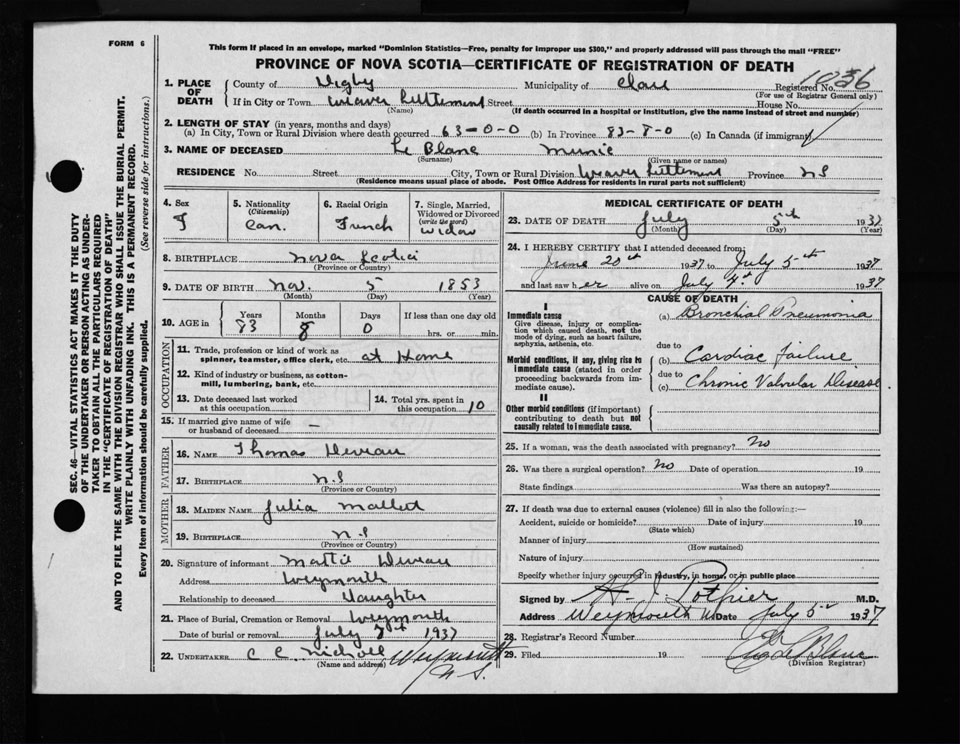 FORM 6
This form if placed in an envelope, marked "Dominion Statistics—Free, penalty for improper use $300," and properly addressed will pass through the mail "FREE"
PROVINCE OF NOVA SCOTIA—CERTIFICATE OF REGISTRATION OF DEATH
1. PLACE OF DEATH
County of Digby Municipality of Clare Registered No. 1036
(For use of Registrar General only)
If in City or Town Weaver Settlement Street House No.
(Name) (If death occurred in a hospital or institution, give the name instead of street and number)
2. LENGTH OF STAY (in years, months and days)
(a) In City, Town or Rural Division where death occurred 63-0-0 (b) In Province 83-8-0 (c) In Canada (if immigrant) /
3. NAME OF DECEASED Le Blanc Munie
(Surname) (Given name or names)
RESIDENCE No. Street City, Town or Rural Division Weaver Settlement Province NS
(Residence means usual place of abode. Post Office Address for residents in rural parts not sufficient)
4. Sex
F
5. Nationality
(Citizenship)
Can.
6. Racial Origin
French
7. Single, Married, Widowed or Divorced
(write the word)
Widow
8. BIRTHPLACE Nova Scotia
(Province or Country)
9. DATE OF BIRTH Nov. 5 1853
(Month) (Day) (Year)
10. AGE in
Years Months Days If less than one day old
83 8 0 hrs. or min.
OCCUPATION
11. Trade, profession or kind of work as
spinner, teamster, office clerk, etc. at Home
12. Kind of industry or business, as cotton-
mill, lumbering, bank, etc.
13. Date deceased last worked
at this occupation
14. Total yrs. spent in
this occupation 10
15. If married give name of wife
or husband of deceased —
FATHER
16. NAME Thomas Deveau
17. BIRTHPLACE N.S
(Province or Country)
MOTHER
18. MAIDEN NAME Julia Mallet
19. BIRTHPLACE N.S
(Province or Country)
20. Signature of informant Deveau
Address Weymouth
Relationship to deceased Daughter
21. Place of Burial, Cremation or Removal Weymouth
Date of burial or removal July 7th 1937
22. UNDERTAKER C C Nicholl Weymouth N.S.
(Name and address)
MEDICAL CERTIFICATE OF DEATH
23. DATE OF DEATH July 5th 1937
(Month) (Day) (Year)
24. I HEREBY CERTIFY that I attended deceased from:
June 20th 1937 to July 5th 1937
and last saw her alive on July 4th 1937
CAUSE OF DEATH
I
Immediate cause
Give disease, injury or complica-
tion which caused death, not the
mode of dying, such as heart failure,
asphyxia, asthenia, etc.
(a) Bronchial Pneumonia
due to
Morbid conditions, if any, giving rise to
immediate cause (stated in order
proceeding backwards from im-
mediate cause).
(b) Cardiac Failure
due to
(c) Chronic Valvular Disease
II
Other morbid conditions (if important)
contributing to death but not
causally related to immediate cause.
25. If a woman, was the death associated with pregnancy? No
26. Was there a surgical operation? No Date of operation 19
State findings Was there an autopsy?
27. If death was due to external causes (violence) fill in also the following:—
Accident, suicide or homicide? Date of injury 19
(State which)
Manner of injury
(How sustained)
Nature of injury
Specify whether injury occurred in industry, in home, or in public place
Signed by A. J. Pothier M.D.
Address Weymouth Date July 5th 1937
28. Registrar's Record Number
29. Filed 19 LeBlanc
(Division Registrar)
SEC. 46—VITAL STATISTICS ACTS MAKES IT THE DUTY
OF THE UNDERTAKER OR PERSON ACTING AS UNDER-
TAKER TO OBTAIN ALL THE PARTICULARS REQUIRED
IN THE "CERTIFICATE OF REGISTRATION OF DEATH"
AND TO FILE THE SAME WITH THE DIVISION REGISTRAR WHO SHALL ISSUE THE BURIAL PERMIT.
WRITE PLAINLY WITH UNFADING INK. THIS IS A PERMANENT RECORD.
Every item of information should be carefully supplied. (See reverse side for instructions.)